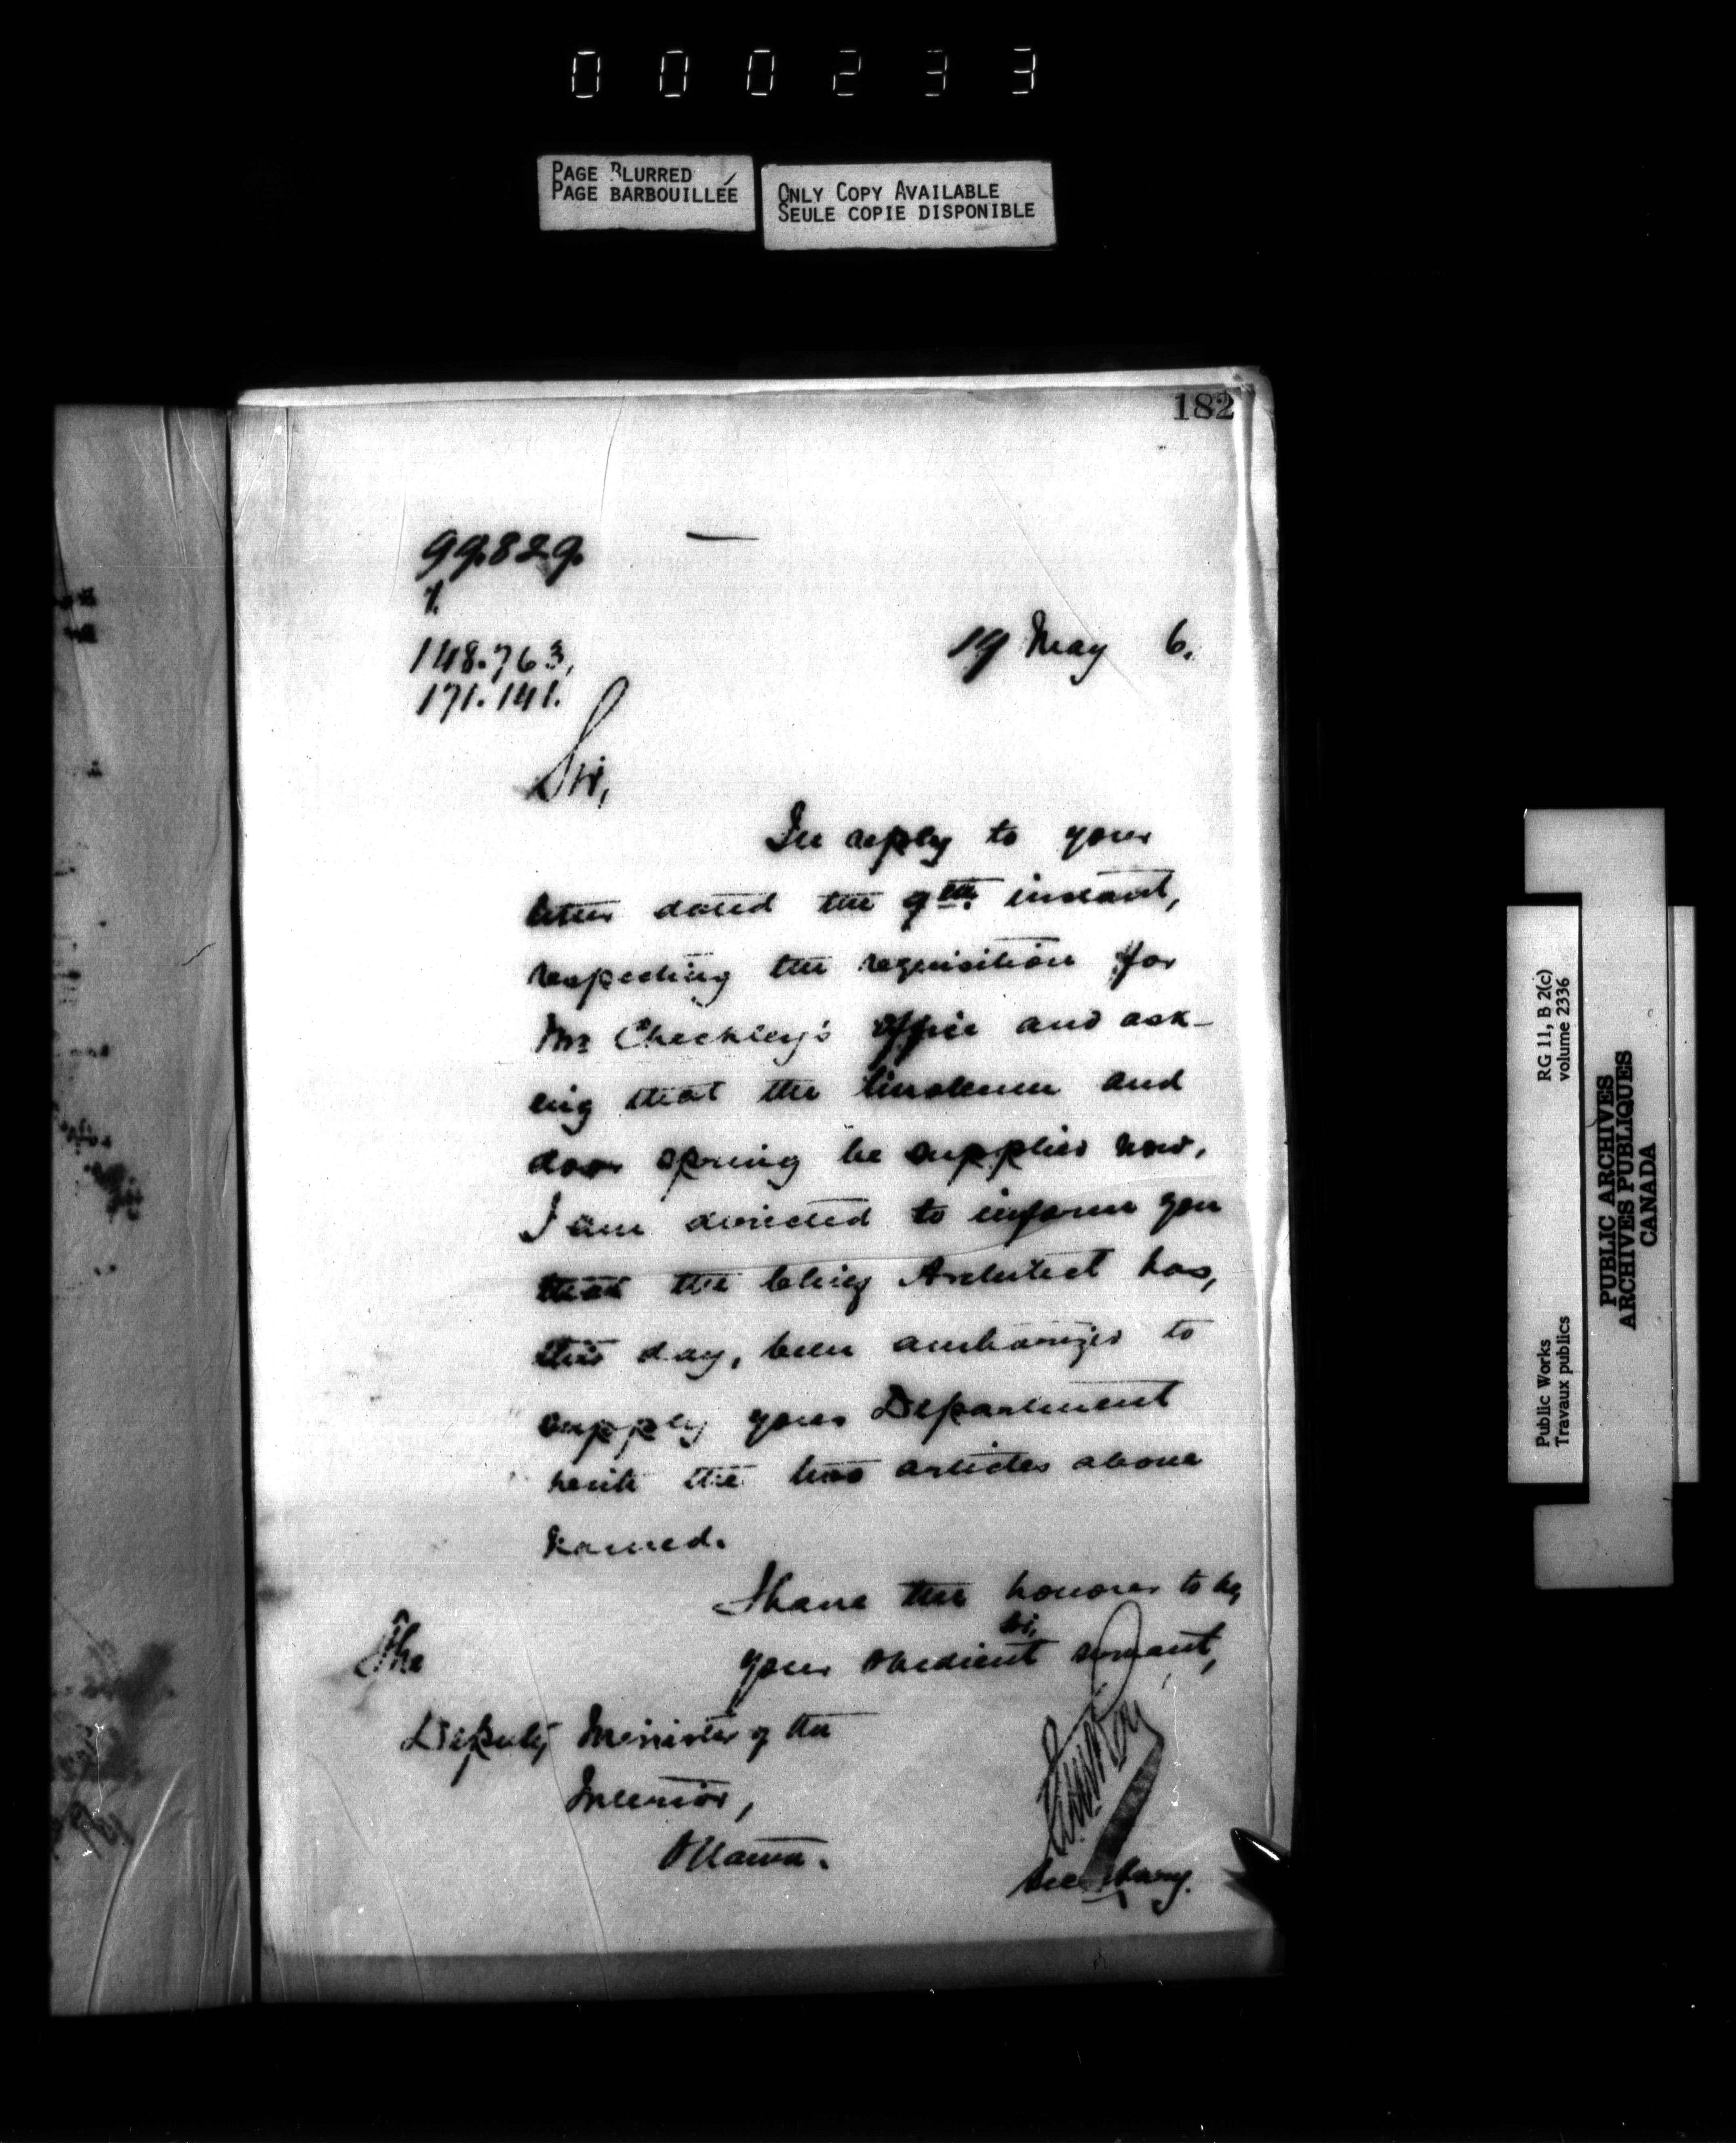 000233
PAGE BLURRED
PAGE BARBOUILLÉE
ONLY COPY AVAILABLE
SEULE COPIE DISPONIBLE
182
99.829.
148.763,
171.141.
19 May 6.
Sir,
In reply to your
letter dated the 9th. instant,
respecting the requisition for
Mr Checkley's office and ask-
ing that the linoleum and
door spring be supplied now,
I am directed to inform you
that the Chief Architect has,
this day, been authorized to
supply your Department
with the two articles above
named.
I have the honour to be,
Sir,
your obedient servant,
The
Deputy Minister of the
Interior,
Ottawa.
Secretary.
RG 11, B 2(c)
volume 2336
Public Works
Travaux publics
PUBLIC ARCHIVES
ARCHIVES PUBLIQUES
CANADA